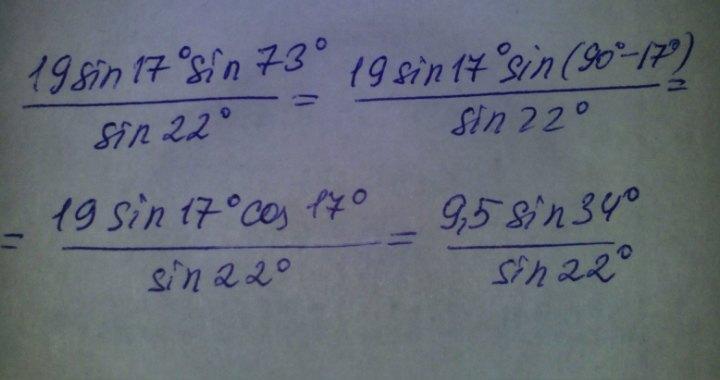 19sin17°sin73° / sin22° = 19sin17°sin(90°-17°) / sin22° =
= 19sin17°cos17° / sin22° = 9,5sin34° / sin22°